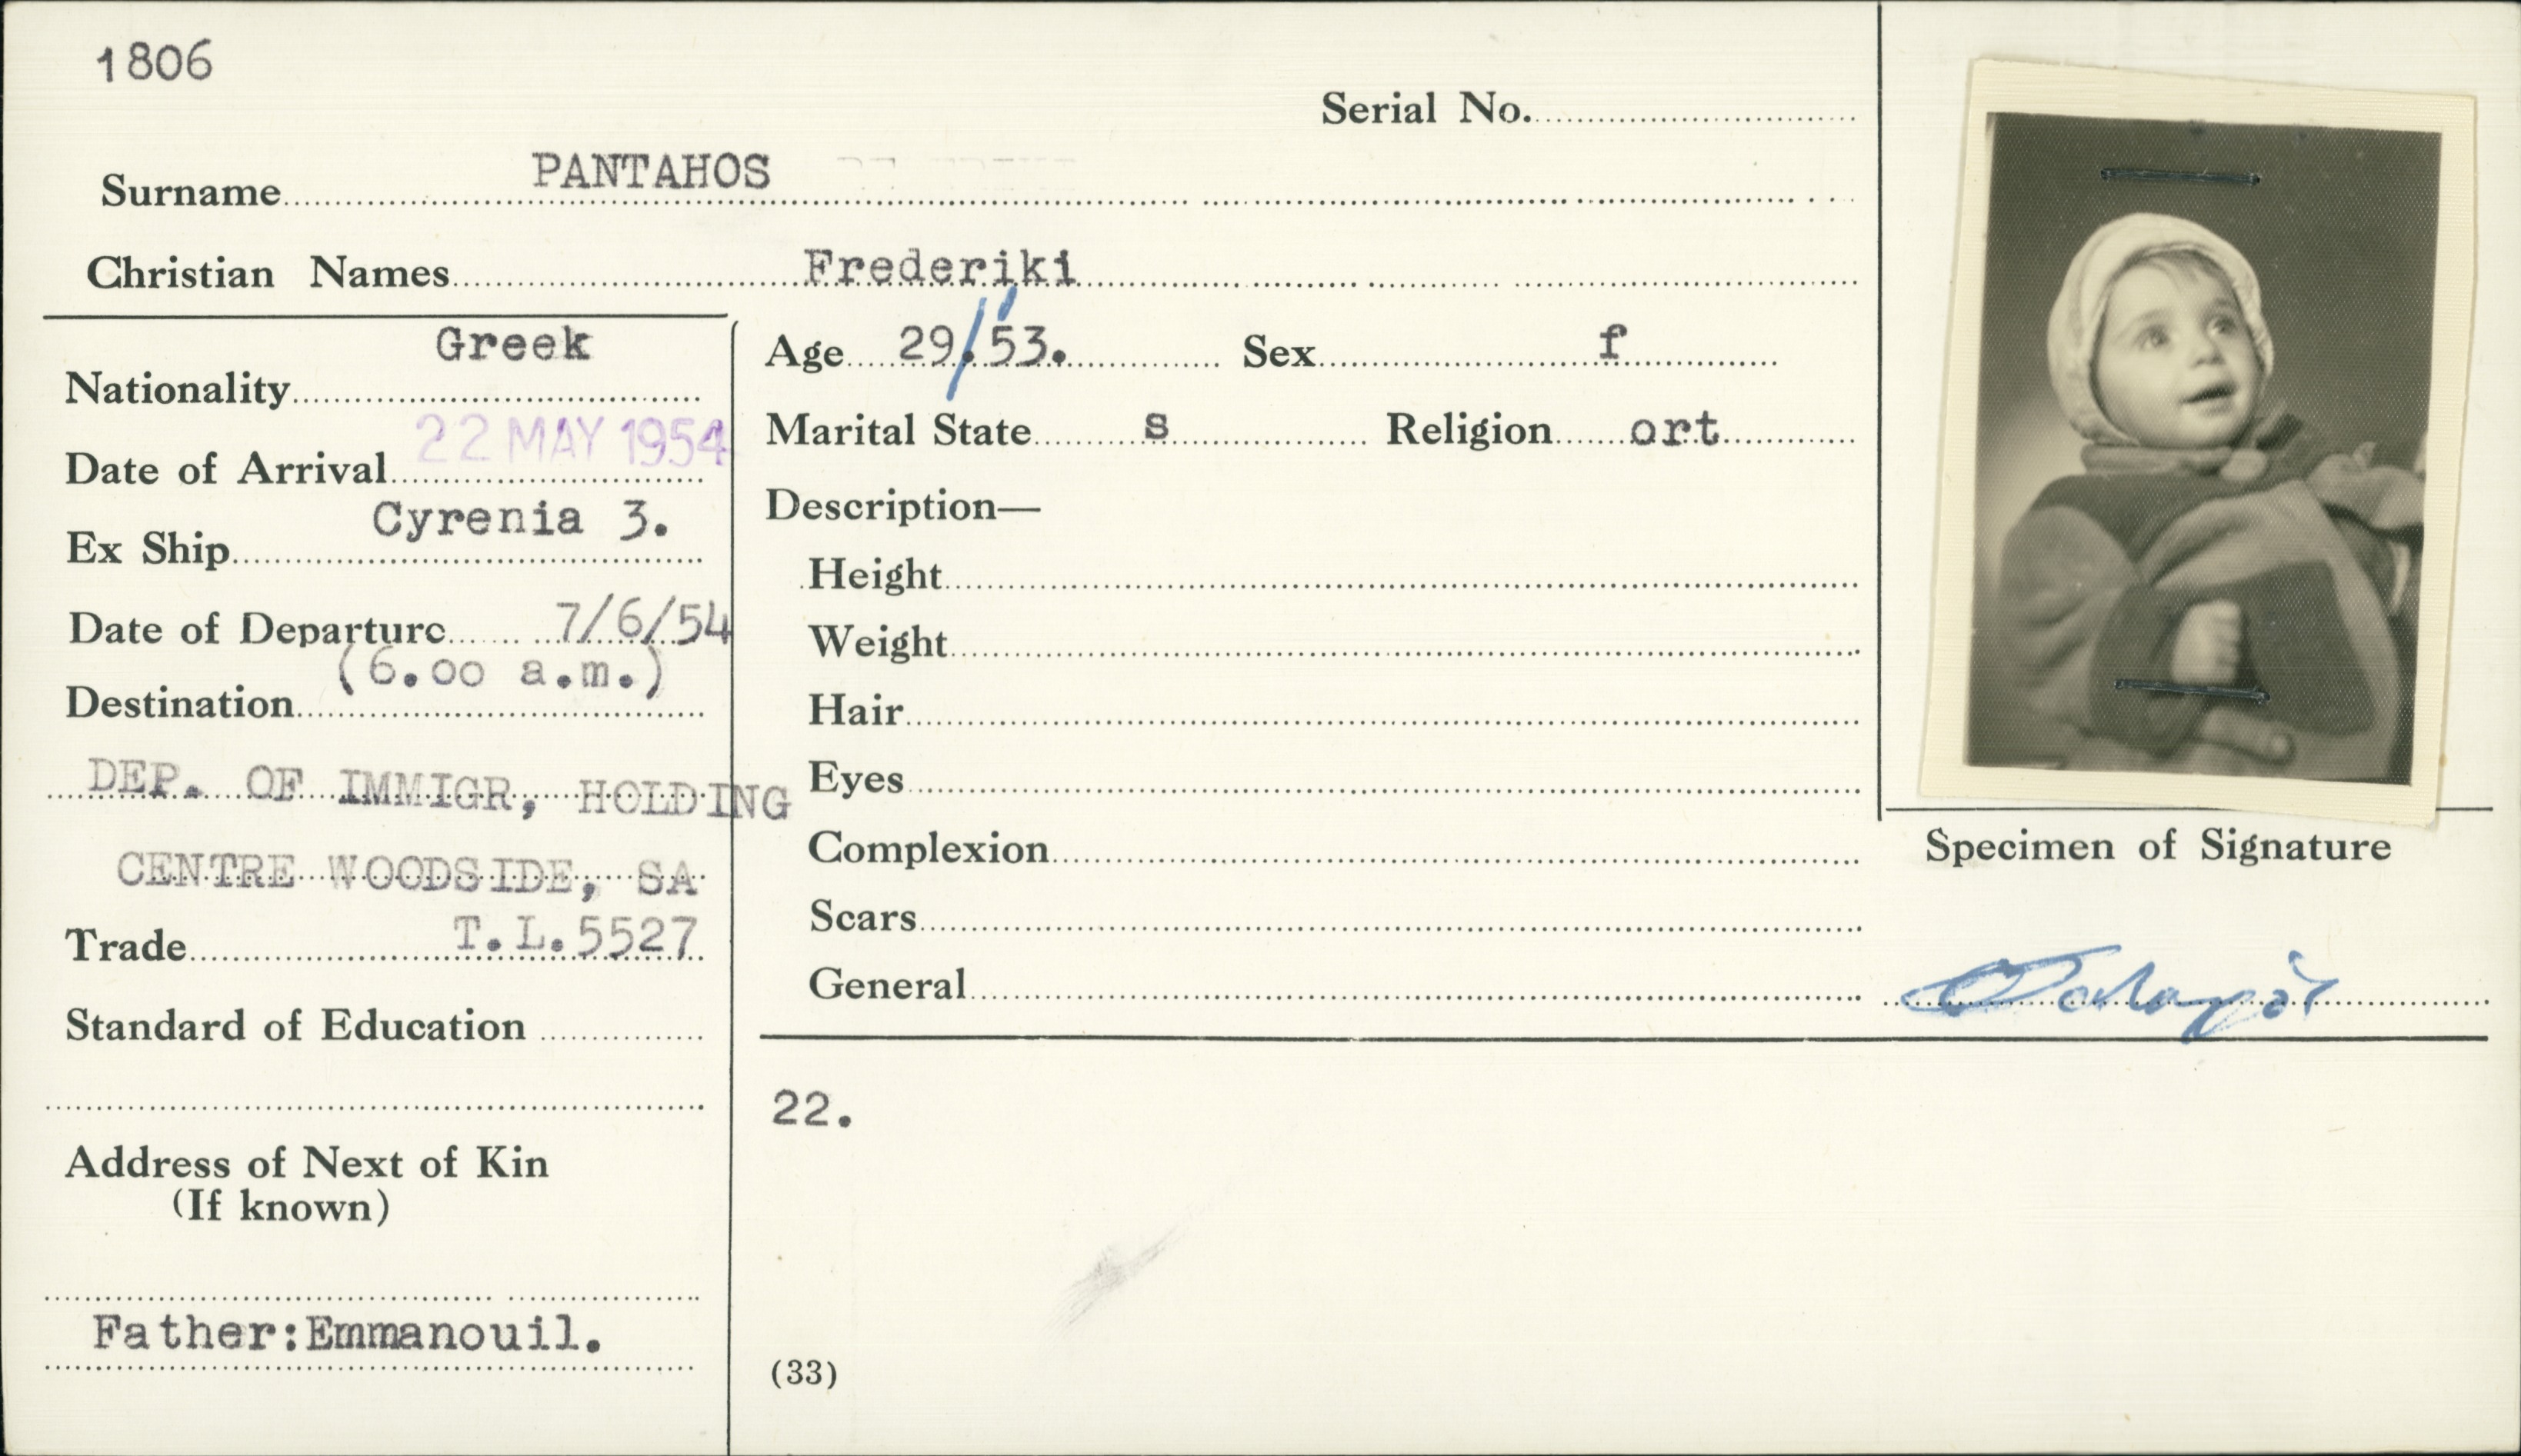 1806
Serial No.
Surname PANTAHOS
Christian Names Frederiki
Nationality Greek
Date of Arrival 22 MAY 1954
Ex Ship Cyrenia 3.
Date of Departure 7/6/54
(6.00 a.m.)
Destination
DEP. OF IMMIGR, HOLDING
CENTRE WOODSIDE, SA
Trade T.L.5527
Standard of Education
Address of Next of Kin
(If known)
Father:Emmanouil.
Age 29/53. Sex f
Marital State s Religion ort
Description—
Height
Weight
Hair
Eyes
Complexion
Scars
General
Specimen of Signature
22.
(33)